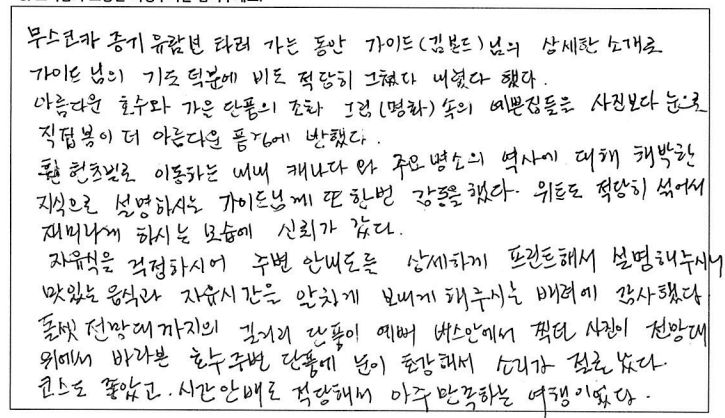 무스코카 증기 유람선 타러 가는 동안 가이드(김본드)님의 상세한 소개로
가이드님의 기도 덕분에 비도 적당히 그쳤다 내렸다 했다.
아름다운 호수와 가을 단풍의 조화 그림(명화)속의 예쁜집들은 사진보다 눈으로
직접봄이 더 아름다운 풍경에 반했다.
헌츠빌로 이동하는 내내 캐나다와 주요명소의 역사에 대해 해박한
지식으로 설명하시는 가이드님께 또 한번 감동을 했다. 위트도 적당히 섞어서
재미나게 하시는 모습에 신뢰가 갔다.
자유식을 걱정하시어 주변 안내도를 상세하게 프린트해서 설명해주시니
맛있는 음식과 자유시간을 알차게 보내게 해주시는 배려에 감사했다
돌셋 전망대까지의 길거리 단풍이 예뻐 버스안에서 찍던 사진이 전망대
위에서 바라본 호수주변 단풍에 눈이 호강해서 소리가 절로 났다.
코스도 좋았고, 시간안배도 적당해서 아주 만족하는 여행이었다.